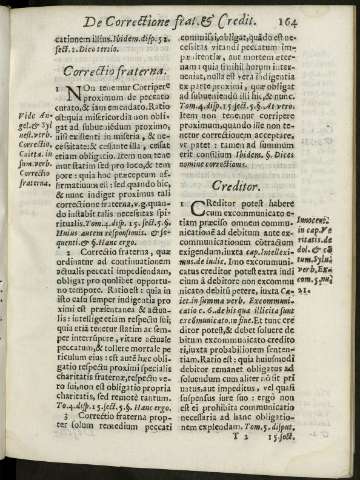 De Correctione frat. & Credit. 164
cationem illius. Ibidem. disp. 5 s.
sect. 2. Dico tertio.
Correctio fraterna.
1 NOn tenemur Corripere
proximum de peccatu
corato, & iam emendato. Ratio
est: quia misericordia non obli-
gat ad subueniendum proximo,
nisi existenti in miseria, & ne-
cessitate: & cessante illa, cessat
etiam obligatio. Item non tene-
mur statim sed pro loco, & tem
pore: quia hoc præceptum af-
firmatiuum est: sed quando hic,
& nunc indiget proximus tali
correctione fraterna, v.g. quan-
do instabit talis necessitas spi-
ritualis. Tom. 4. disp. 15. sect. 5. §.
Huius autem responsionis, & se-
quenti. & §. Hanc ergo.
Vide An-
gel. & Syl
uest. verb.
Correctio,
Caiet. in
sum. verb.
Correctio
fraterna.
2 Correctio fraterna, quæ
ordinatur ad continuationem
actualis peccati impediendam,
obligat pro quolibet opportu-
no tempore. Ratio est: quia in
isto casu semper indigentia pro
ximi est præsentanea & actua-
lis: intellige etiam respectu sui,
quia etiã tenetur statim ac sem-
per interrũpere, vitare actuale
peccatum, & tollere mortale pe
riculum eius: est autẽ hæc obli-
gatio respectu proximi specialis
charitatis fraternæ, respectu ve-
ro sui, non est obligatio propria
charitatis, sed remotè tantum.
To. 4. disp. 15. sect. 5. §. Hanc ergo.
3 Correctio fraterna prop-
ter solum remedium peccati
commissi, obligat, quãdo est ne-
cessitas vitandi peccatum im-
pœnitentiæ, aut mortem æter-
nam: quia si nihil horum inter-
neniat, nulla est vera indigentia
ex parte proximi, quæ obliget
ad subueniendũ illi hic, & nunc.
Tom. 4. disp. 15. sect. 5. §. At vero.
Item non tenemur corripere
proximum, quando ille non te-
netur correctionem acceptare,
vt patet: tamen ad summum
erit consilium Ibidem. §. Dices
nomine correctionis.
Creditor.
1 CReditor potest habere
cum excomunicato e-
tiam præciso omnem commu-
nicationẽ ad debitum ante ex-
communicationem cõtractum
exigendum. iuxta cap. Intelleximus
de iudic. Imo excommunicatus
creditor potest extra iudi
cium à debitore non excommu
nicato debitũ petere, iuxta Ca-
iet. in summa verb. Excommuni-
catio c. 6. de his quæ illicita sunt
excõmunicato. in fine. Et tunc cre
ditor potest, & debet soluere de
bitum excommunicato credito
ri, iuxta probabiliorem senten-
tiam. Ratio est: quia huiusmodi
debitor remanet obligatus ad
soluendum cum aliter nõ sit mi-
natus, aut impeditus, vel quasi
suspensus iure suo: ergo non
est ei prohibita communicatio
necessaria ad hanc obligatio-
nem explendam. Tom. 5. disput.
Innocent.
in cap. Ve
ritatis. de
dol. & cõ
tum. Sylu.
verb, Ex
com. 5. nu.
21.
T 2 15. sect.